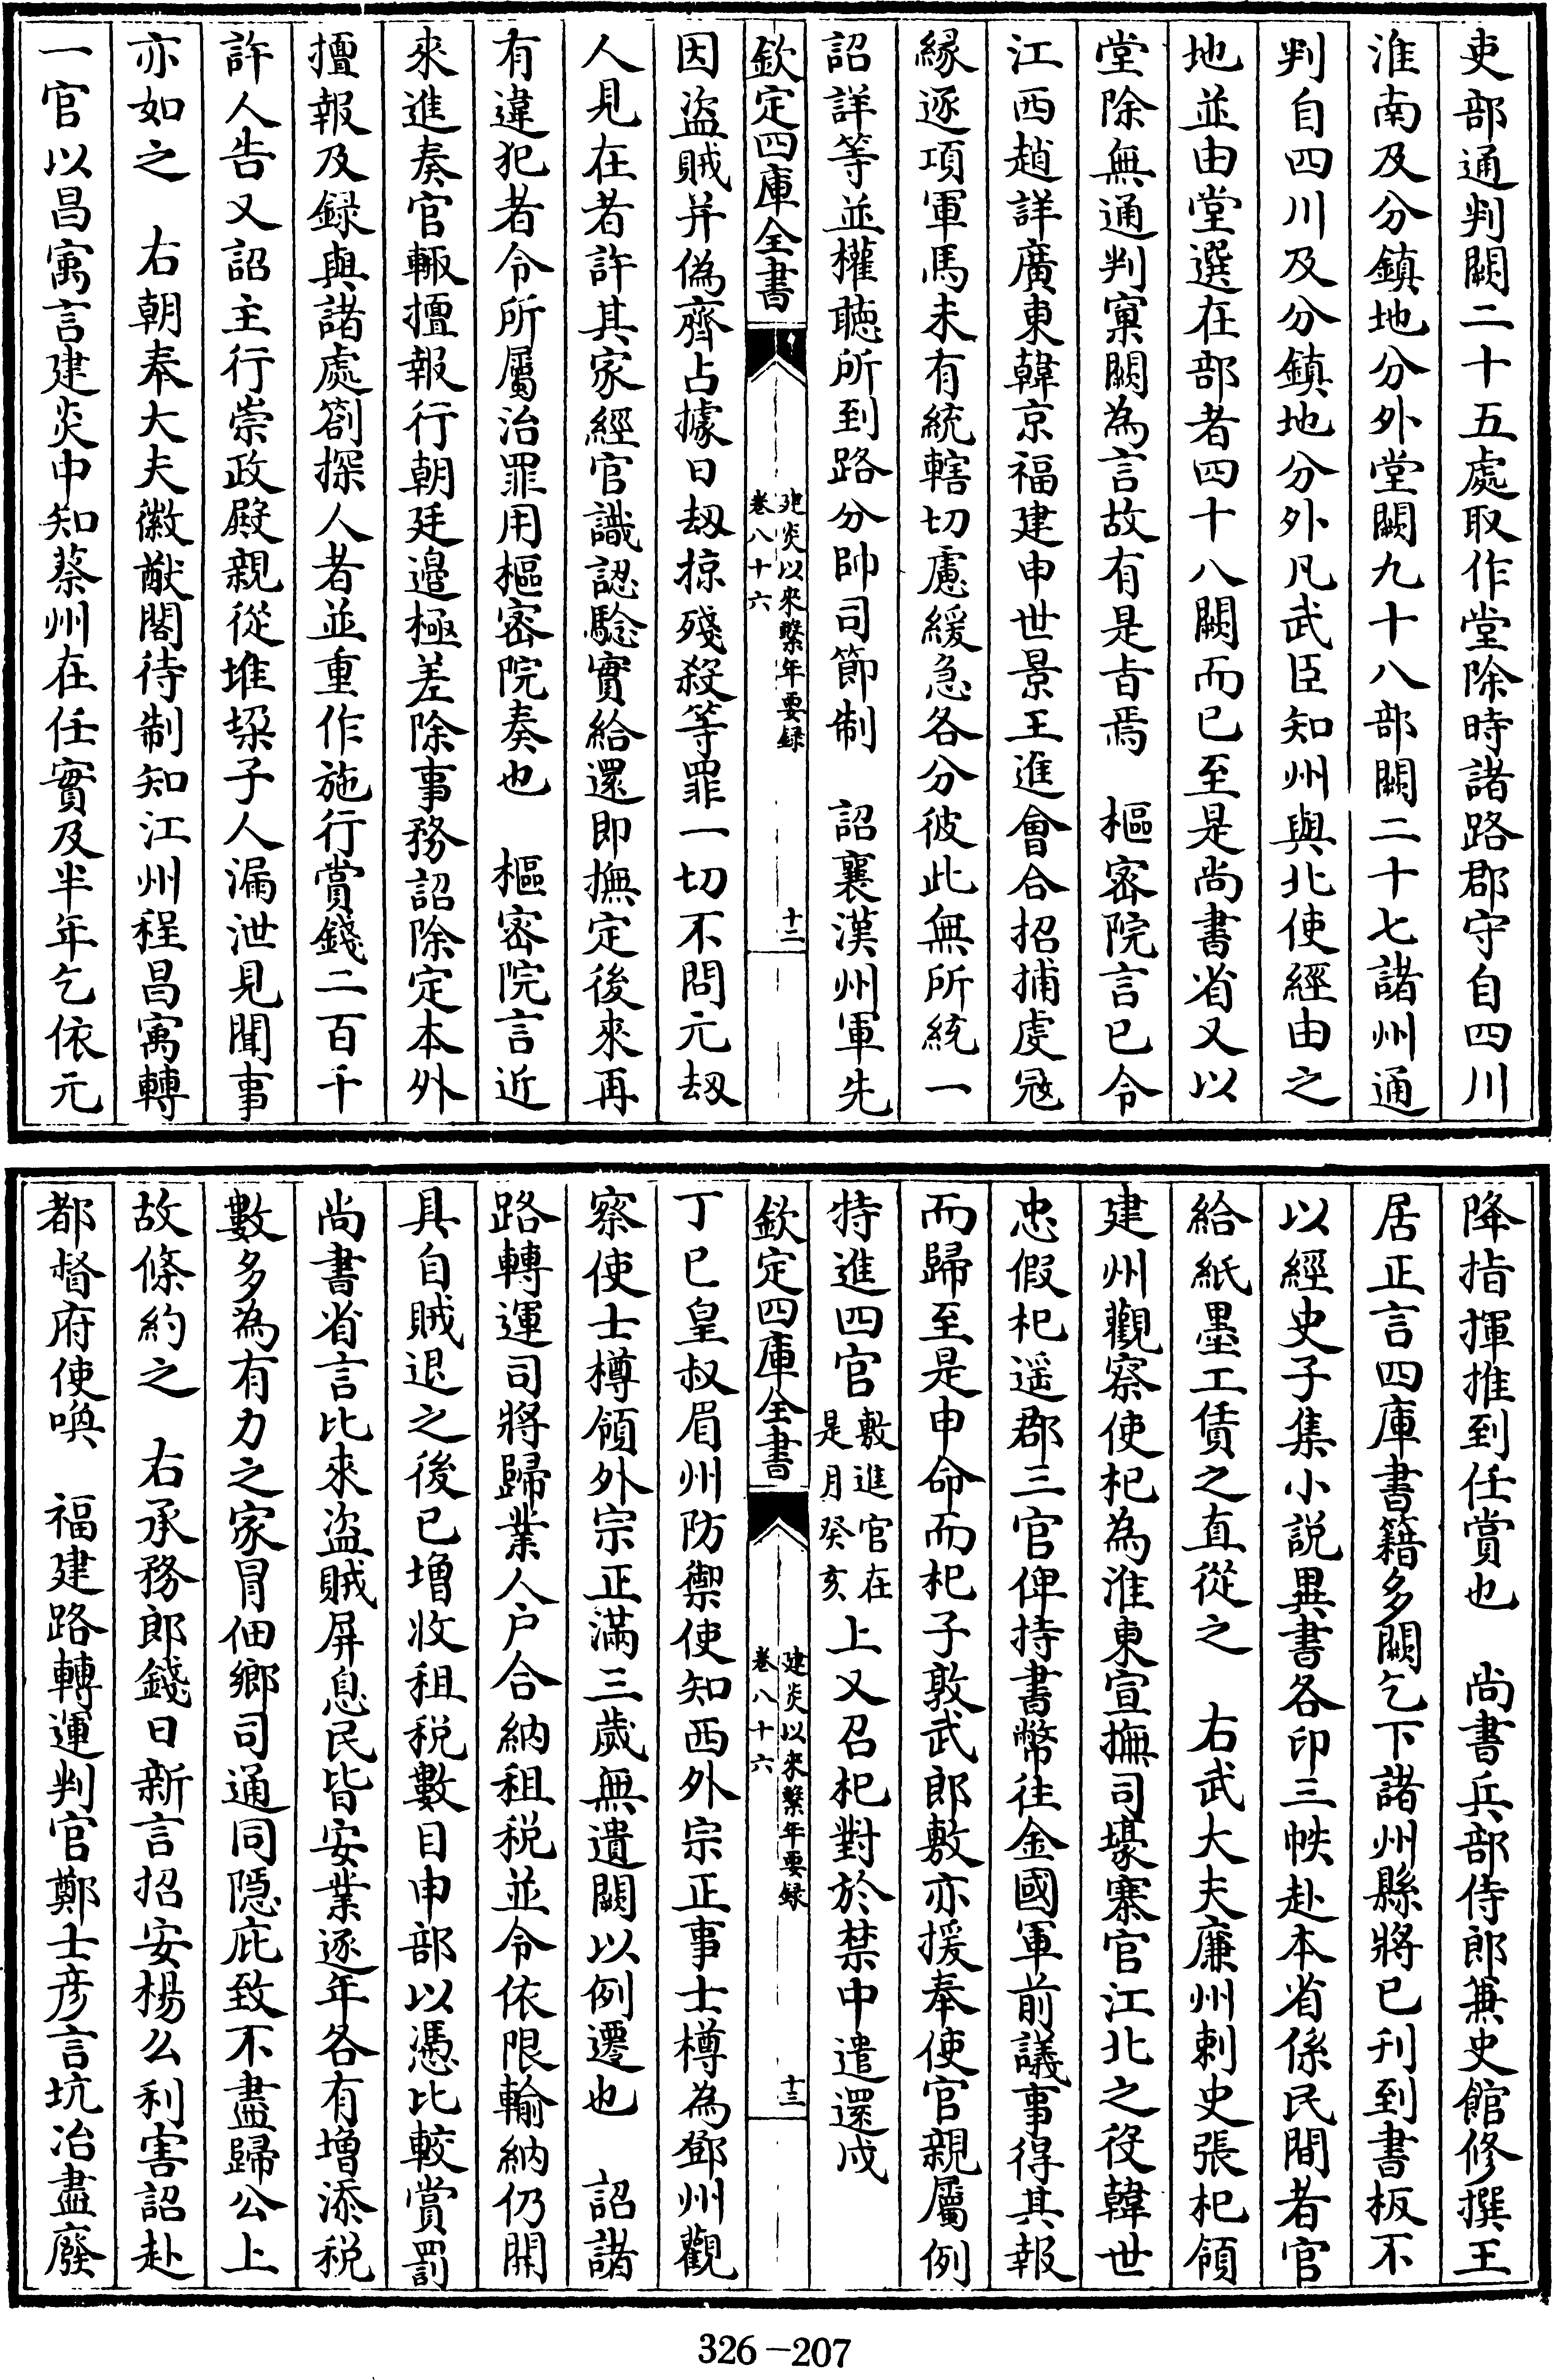 吏部通判闕二十五處取作堂除時諸路郡守自四川
淮南及分鎮地分外堂闕九十八部闕二十七諸州通
判自四川及分鎮地分外凡武臣知州與北使經由之
地並由堂選在部者四十八闕而已至是尚書省又以
堂除無通判窠闕為言故有是㫖焉　樞密院言已令
江西趙詳廣東韓京福建申世景王進會合招捕虔冦
緣逐項軍馬未有統轄切慮緩急各分彼此無所統一
詔詳等並權聽所到路分帥司節制　詔襄漢州軍先
欽定四庫全書
建炎以來繫年要録
卷八十六
十二
因盜賊并偽齊占據日刼掠殘殺等罪一切不問元刼
人見在者許其家經官識認騐實給還即撫定後來再
有違犯者令所屬治罪用樞密院奏也　樞密院言近
來進奏官輙擅報行朝廷邉極差除事務詔除定本外
擅報及録與諸處劄探人者並重作施行賞錢二百千
許人告又詔主行崇政殿親從堆垜子人漏泄見聞事
亦如之　右朝奉大夫徽猷閣待制知江州程昌㝢轉
一官以昌㝢言建炎中知蔡州在任實及半年乞依元
降指揮推到任賞也　尚書兵部侍郎兼史館修撰王
居正言四庫書籍多闕乞下諸州縣將已刋到書板不
以經史子集小說異書各印三帙赴本省係民間者官
給紙墨工賃之直從之　右武大夫亷州刺史張杞領
建州觀察使杞為淮東宣撫司壕寨官江北之役韓世
忠假杞遥郡三官俾持書幣往金國軍前議事得其報
而歸至是申命而杞子敦武郎敷亦援奉使官親屬例
特進四官敷進官在是月癸亥上又召杞對於禁中遣還戍
欽定四庫全書
建炎以來繫年要録
卷八十六
十三
丁巳皇叔眉州防禦使知西外宗正事士樽為鄧州觀
察使士樽領外宗正滿三歲無遺闕以例遷也　詔諸
路轉運司將歸業人户合納租稅並令依限輸納仍開
具自賊退之後已增收租税數目申部以憑比較賞罰
尚書省言比來盜賊屏息民皆安業逐年各有增添税
數多為有力之家冐佃鄉司通同隱庇致不盡歸公上
故條約之　右承務郎錢日新言招安楊么利害詔赴
都督府使喚　福建路轉運判官鄭士彦言坑冶盡廢
326－207